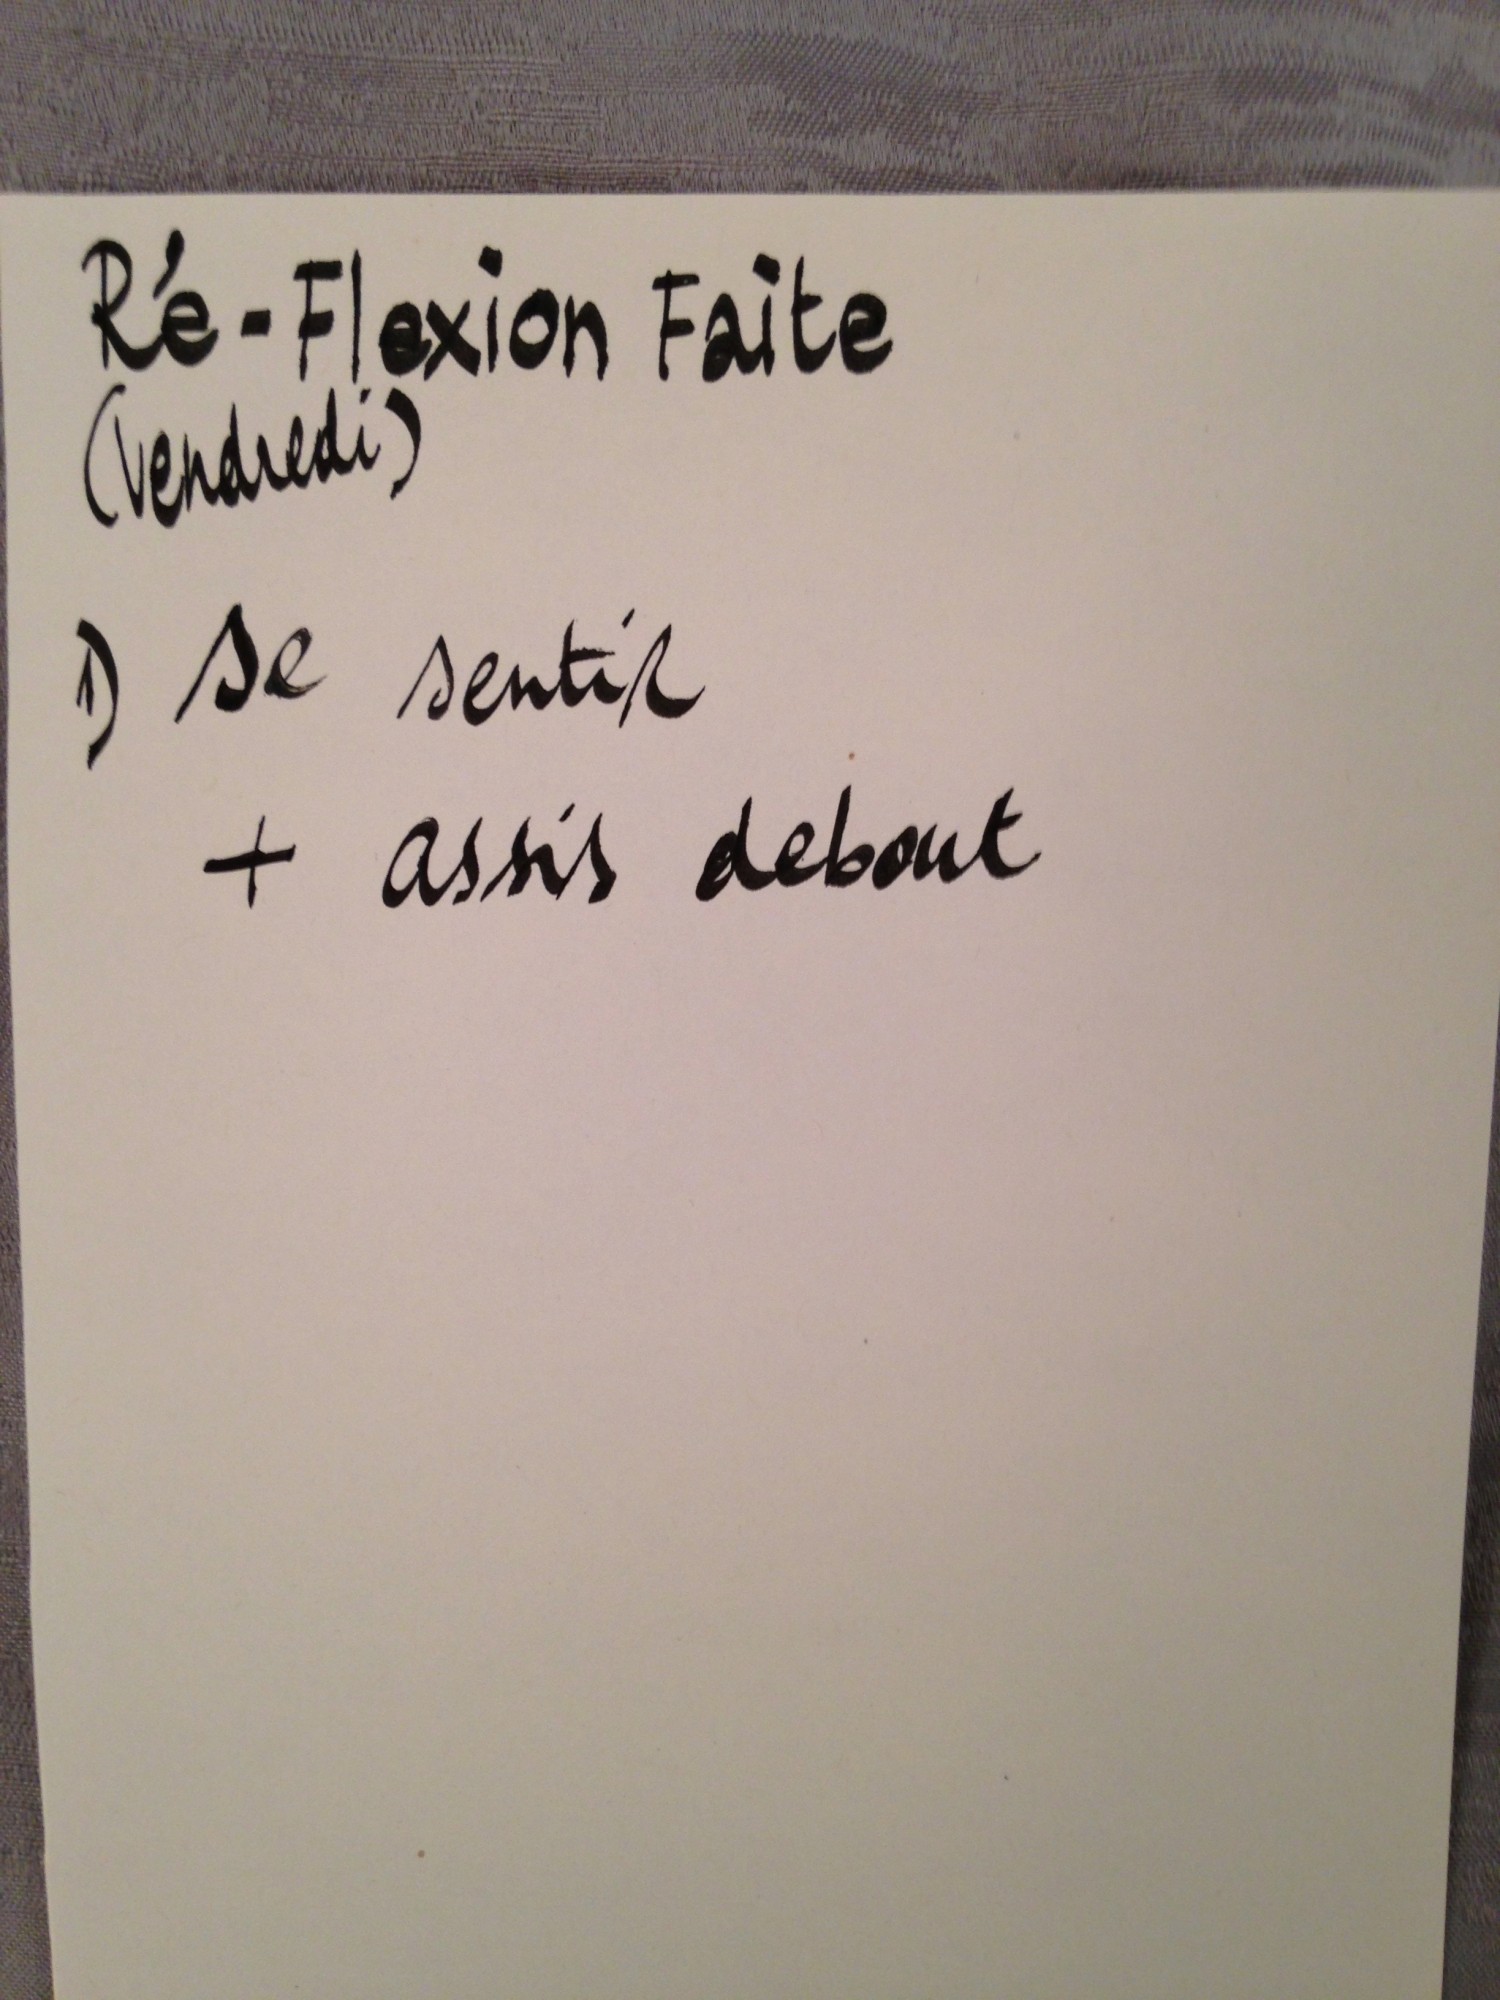 Ré-Flexion Faite
(vendredi)
1) se sentir
+ assis debout